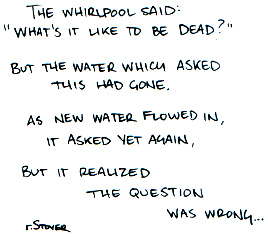 THE WHIRLPOOL SAID:
"WHAT'S IT LIKE TO BE DEAD?"
BUT THE WATER WHICH ASKED
THIS HAD GONE.
AS NEW WATER FLOWED IN,
IT ASKED YET AGAIN,
BUT IT REALIZED
THE QUESTION
WAS WRONG...
r.STOVER